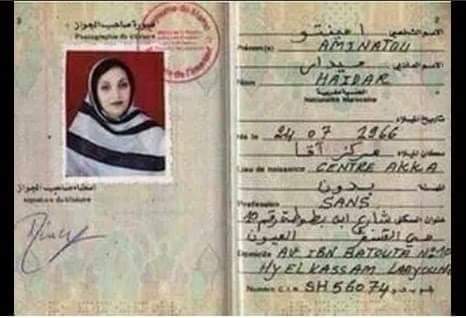 صورة صاحب الجواز
Photographie du titulaire
امضاء صاحب الجواز
signature du titulaire
2
الاسم الشخصي امينتو
Prénom(s) AMINATOU
الاسم العائلي حيدار
Nom HAIDAR
الجنسية مغربية
Nationalité Marocaine
تاريخ الميلاد
Né le 24 07 1966
مكان الميلاد مركز آقا
Lieu de naissance CENTRE AKKA
المهنة بدون
Profession SANS
عنوان السكنى شارع ابن بطوطة رقم 10
حي القسم العيون
Domicile AV IBN BATOUTA N° 10
Hy EL KASSAM LAAYOUNE
Numéro C.I.N. SH 56074